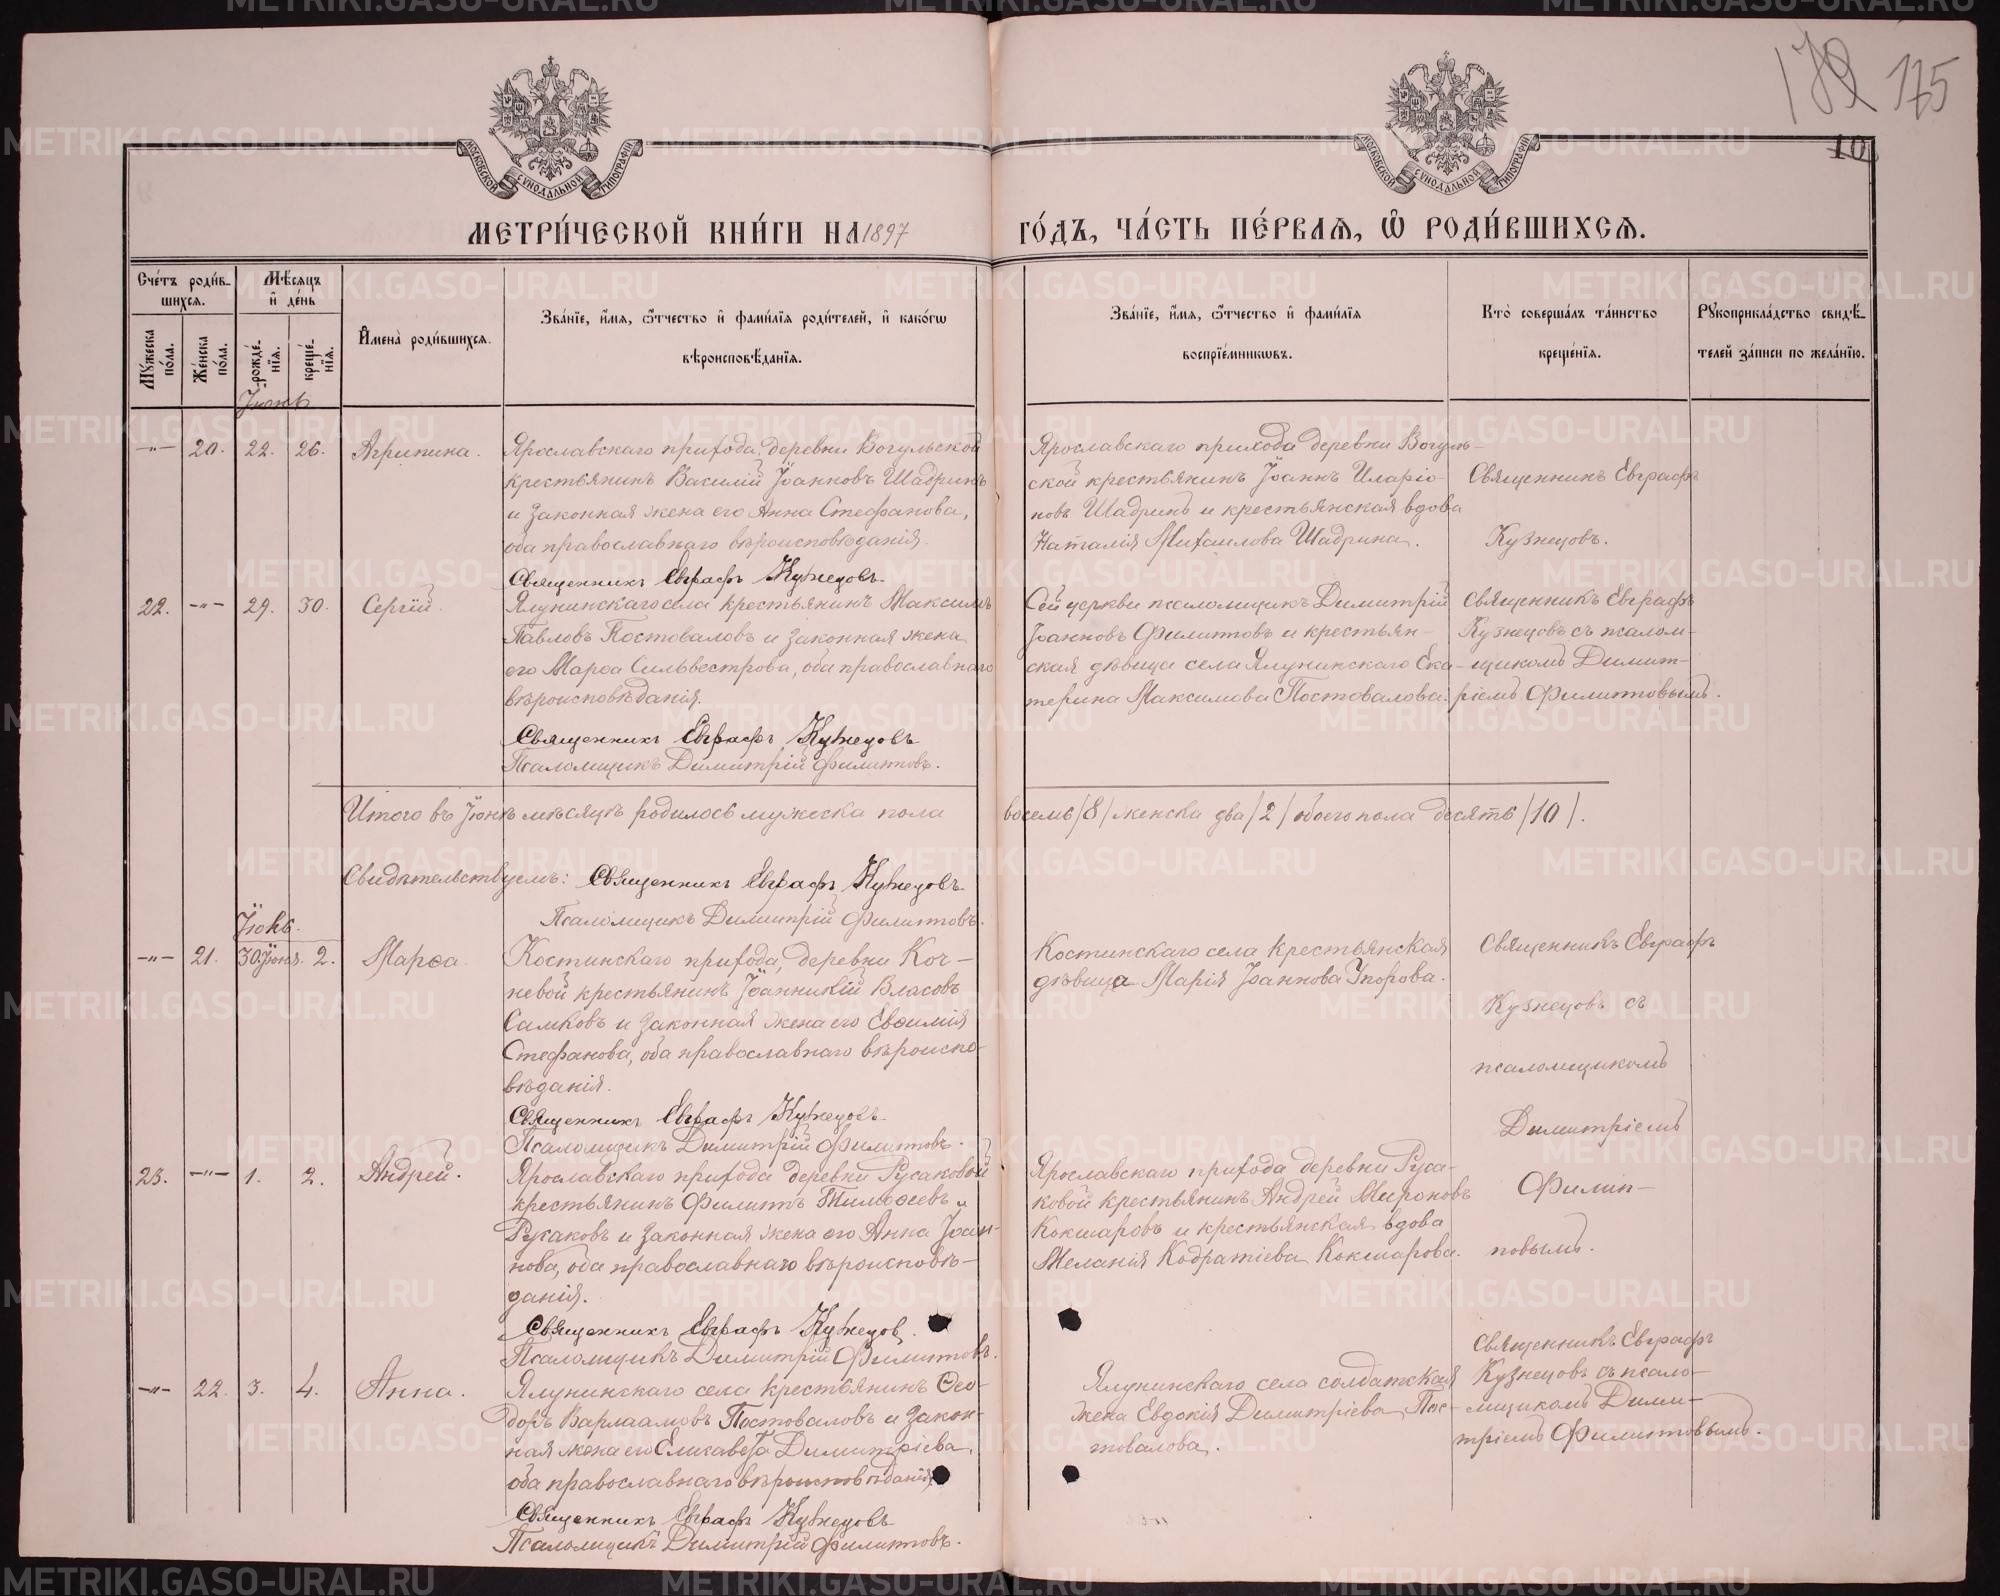 172 175
10
МОСКОВСКОЙ СУНОДАЛЬНОЙ ТИПОГРАФІИ
МОСКОВСКОЙ СУНОДАЛЬНОЙ ТИПОГРАФІИ
МЕТРИ́ЧЕСКОЙ КНИ́ГИ НА 1897 ГО́ДЪ, ЧА́СТЬ ПЕ́РВАѦ, Ѡ РОДИ́ВШИХСѦ.
Сче́тъ роди́в-
шихсѧ.
Мѣ́сѧцъ
и҆ де́нь
Мꙋ́жеска по́ла.
Же́нска по́ла.
рожде́-нїѧ.
креще́-нїѧ.
И҆мена̀ роди́вшихсѧ.
Зва́нїе, и҆́мѧ, ѻ҆́тчество и҆ фами́лїѧ роди́телей, и҆ како́гѡ
вѣроисповѣ́данїѧ.
Зва́нїе, и҆́мѧ, ѻ҆́тчество и҆ фами́лїѧ
воспрїе́мникѡвъ.
Кто̀ соверша́лъ та́инство
креще́нїѧ.
Рꙋкоприкла́дство свидѣ́-
телей за́писи по жела́нїю.
Іюнь
-"- 20. 22. 26. Агрипина.
Ярославскаго прихода, деревни Вогульской
крестьянинъ Василій Іоанновъ Шадринъ
и законная жена его Анна Стефанова,
оба православнаго вѣроисповѣданія.
Священникъ Евграфъ Кузнецовъ.
Ярославскаго прихода деревни Вогуль-
ской крестьянинъ Іоаннъ Иларіо-
новъ Шадринъ и крестьянская вдова
Наталія Михаилова Шадрина.
Священникъ Евграфъ
Кузнецовъ.
22. -"- 29. 30. Сергій.
Ялунинскаго села крестьянинъ Максимъ
Павловъ Постоваловъ и законная жена
его Марѳа Сильвестрова, оба православнаго
вѣроисповѣданія.
Священникъ Евграфъ Кузнецовъ
Псаломщикъ Димитрій Филипповъ.
Сей церкви псаломщикъ Димитрій
Іоанновъ Филипповъ и крестьян-
ская дѣвица села Ялунинскаго Ека-
терина Максимова Постовалова.
Священникъ Евграфъ
Кузнецовъ съ псалом-
щикомъ Димит-
ріемъ Филипповымъ.
Итого въ Іюнѣ мѣсяцѣ родилось мужеска пола восемь /8/ женска два /2/ обоего пола десять /10/.
Свидѣтельствуемъ: Священникъ Евграфъ Кузнецовъ.
Псаломщикъ Димитрій Филипповъ.
-"- 21. 30 Іюня. 2. Марѳа.
Костинскаго прихода, деревни Коч-
невой крестьянинъ Іоанникій Власовъ
Самковъ и законная жена его Евѳимія
Стефанова, оба православнаго вѣроиспо-
вѣданія.
Священникъ Евграфъ Кузнецовъ.
Псаломщикъ Димитрій Филипповъ.
Костинскаго села крестьянская
дѣвица Марія Іоаннова Упорова.
Священникъ Евграфъ
Кузнецовъ съ
псаломщикомъ
Димитріемъ
Филип-
повымъ.
23. -"- 1. 2. Андрей.
Ярославскаго прихода деревни Русаковой
крестьянинъ Филиппъ Тимоѳеевъ
Русаковъ и законная жена его Анна Іоан-
нова, оба православнаго вѣроисповѣ-
данія.
Священникъ Евграфъ Кузнецов.
Псаломщикъ Димитрій Филипповъ.
Ярославскаго прихода деревни Руса-
ковой крестьянинъ Андрей Мироновъ
Кокшаровъ и крестьянская вдова
Меланія Кодратіева Кокшарова.
-"- 22. 3. 4. Анна.
Ялунинскаго села крестьянинъ Ѳео-
доръ Варлаамовъ Постоваловъ и закон-
ная жена его Елисавета Димитріева,
оба православнаго вѣроисповѣданія.
Священникъ Евграфъ Кузнецовъ
Псаломщикъ Димитрій Филипповъ.
Ялунинскаго села солдатская
жена Евдокія Димитріева Пос-
товалова.
Священникъ Евграфъ
Кузнецовъ съ псало-
мщикомъ Дими-
тріемъ Филипповымъ.